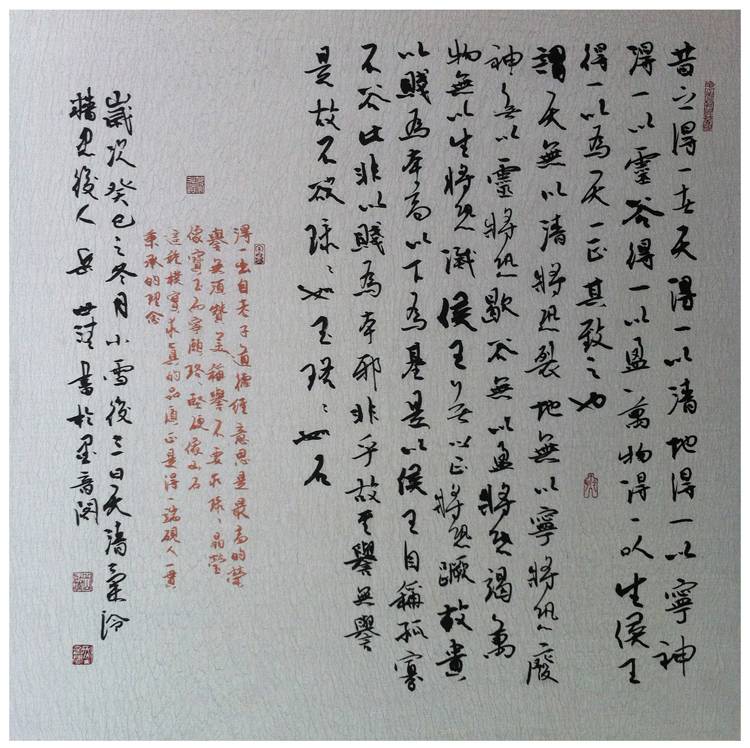 昔之得一者天得一以清地得一以寧神
得一以靈谷得一以盈萬物得一以生侯王
得一以為天一正其致之也
謂天無以清將恐裂地無以寧將恐廢
神無以靈將恐歇谷無以盈將恐竭萬
物無以生將恐滅侯王無以正將恐蹶故貴
以賤為本高以下為基是以侯王自稱孤寡
不谷此非以賤為本邪非乎故至譽無譽
是故不欲琭、如玉珞、如石
得一出自老子道德經意思是最高的榮
譽無須贊美稱譽不要求琭、晶瑩
像寶玉而寧願珞、堅硬像山石
這種樸實求真的品質正是得一端硯人一貫
秉承的理念
歲次癸巳之冬月小雪後三日天清氣泠
後人 岳世 書於墨音閣